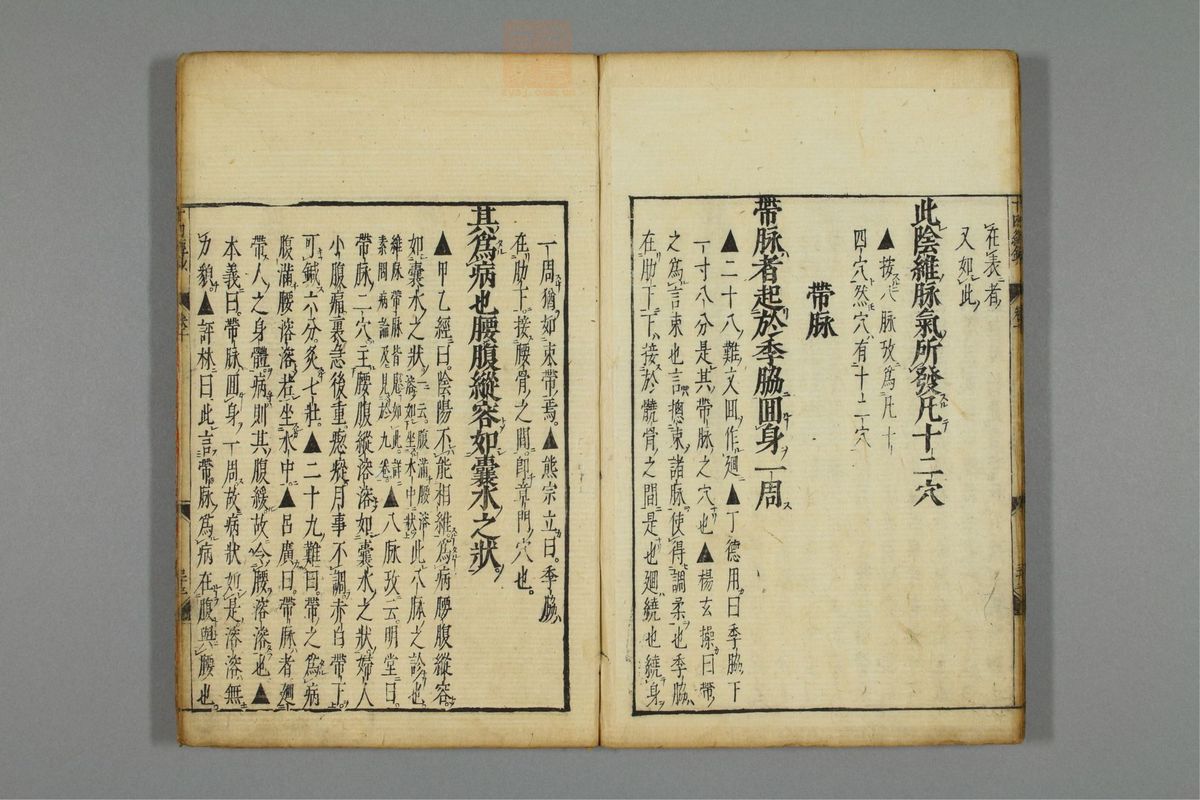 在表者
又如此
此陰維脉氣所發凡十二穴
▲按八脉攷爲凡十
四穴然穴有十二穴
帶脉
帶脉者起於季脇囬身一周
▲二十八難文囬作廻▲丁德用曰季脇下
一寸八分是其帶脉之穴也▲楊玄操曰帶
之爲言束也言摠束諸脉使得調柔也季脇
在肋下下接於髖骨之間是也廻繞也繞身
一周猶如束帶焉。▲熊宗立曰。季脇
在肋下。接腰骨之間。即章門穴也。
其爲病也腰腹縱容如囊水之狀。
▲甲乙經曰。陰陽不能相維爲病腰腹縱容。
如囊水之狀一云。腹滿腰溶溶如坐水中狀此八脉之診也
維脉帶脉皆應如此詳素問病論及見於九卷▲八脉攷云。明堂曰。
帶脉二穴。主腰腹縱溶溶如囊水之狀。婦人
小腹痛。裏急後重瘛瘲。月事不調赤白帶下。
可鍼六分。灸七壯。▲二十九難曰。帶之爲病
腹滿腰溶溶若坐水中。▲呂廣曰。帶脉者廻
帶人之身體。病則其腹緩。故令腰溶溶也▲
本義曰。帶脉囬身一周。故病狀如是溶溶無
力貌▲評林曰此言帶脉爲病在腹與腰也。